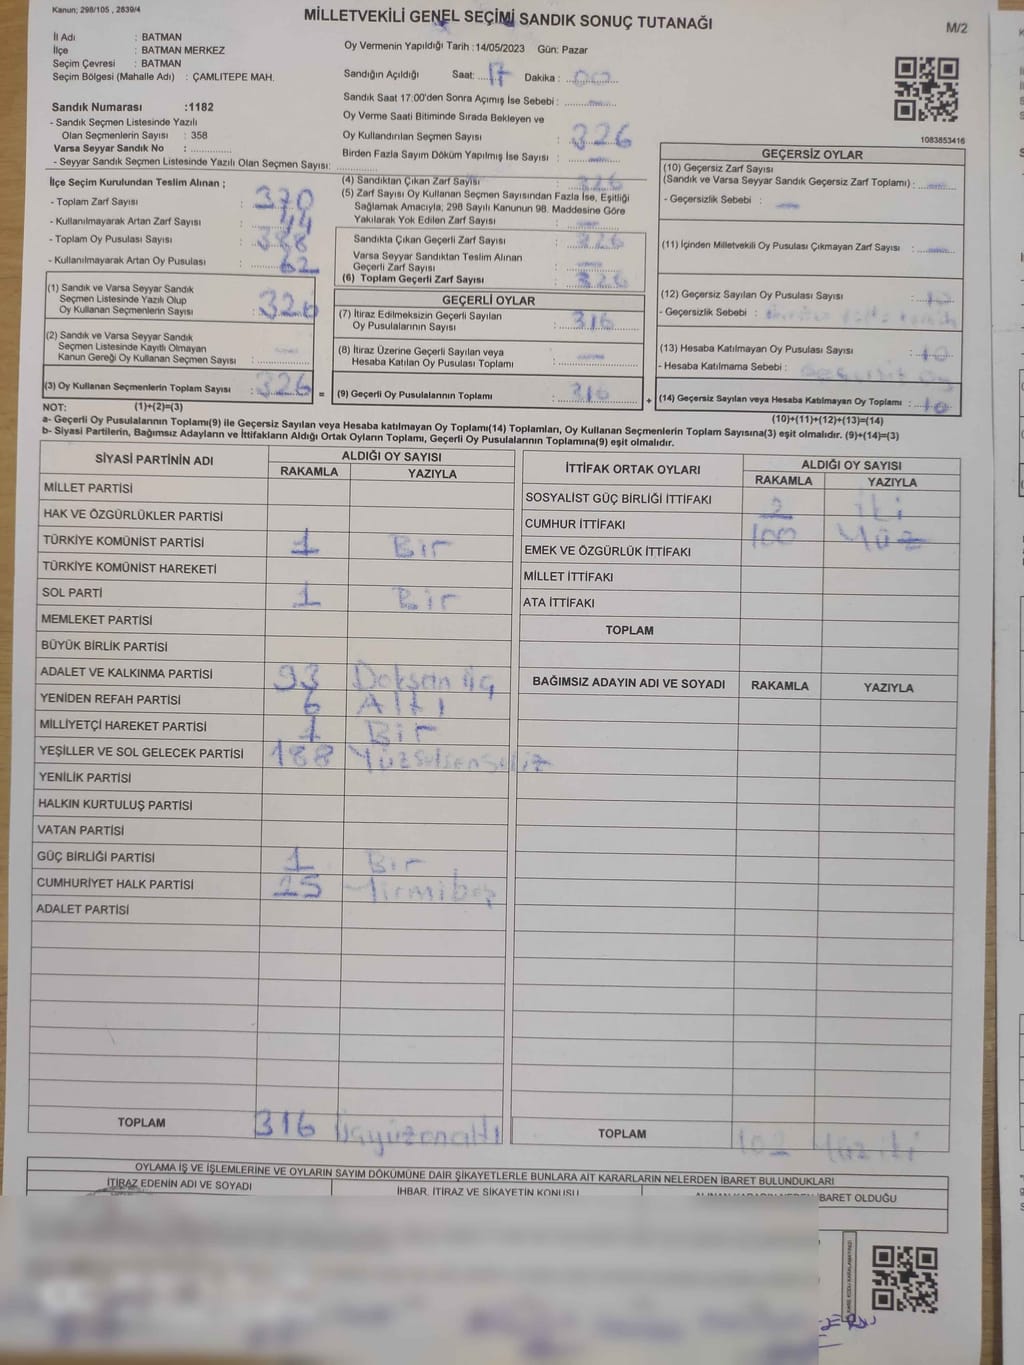 Kanun; 298/105 , 2839/4
MİLLETVEKİLİ GENEL SEÇİMİ SANDIK SONUÇ TUTANAĞI
M/2
İl Adı : BATMAN
İlçe : BATMAN MERKEZ
Seçim Çevresi : BATMAN
Seçim Bölgesi (Mahalle Adı) : ÇAMLITEPE MAH.
Sandık Numarası :1182
- Sandık Seçmen Listesinde Yazılı
Olan Seçmenlerin Sayısı : 358
Varsa Seyyar Sandık No : ..............
- Seyyar Sandık Seçmen Listesinde Yazılı Olan Seçmen Sayısı: ..............
Oy Vermenin Yapıldığı Tarih :14/05/2023 Gün: Pazar
Sandığın Açıldığı Saat: 17 Dakika : 00
Sandık Saat 17:00'den Sonra Açımış İse Sebebi : —
Oy Verme Saati Bitiminde Sırada Bekleyen ve
Oy Kullandırılan Seçmen Sayısı : 326
Birden Fazla Sayım Döküm Yapılmış İse Sayısı : —
1083853416
İlçe Seçim Kurulundan Teslim Alınan ;
- Toplam Zarf Sayısı : 370
- Kullanılmayarak Artan Zarf Sayısı : 44
- Toplam Oy Pusulası Sayısı : 388
- Kullanılmayarak Artan Oy Pusulası : 62
(1) Sandık ve Varsa Seyyar Sandık
Seçmen Listesinde Yazılı Olup
Oy Kullanan Seçmenlerin Sayısı : 326
(2) Sandık ve Varsa Seyyar Sandık
Seçmen Listesinde Kayıtlı Olmayan
Kanun Gereği Oy Kullanan Seçmen Sayısı : —
(3) Oy Kullanan Seçmenlerin Toplam Sayısı : 326 =
(4) Sandıktan Çıkan Zarf Sayısı : 326
(5) Zarf Sayısı Oy Kullanan Seçmen Sayısından Fazla İse, Eşitliği
Sağlamak Amacıyla; 298 Sayılı Kanunun 98. Maddesine Göre
Yakılarak Yok Edilen Zarf Sayısı : —
Sandıkta Çıkan Geçerli Zarf Sayısı : 326
Varsa Seyyar Sandıktan Teslim Alınan
Geçerli Zarf Sayısı : —
(6) Toplam Geçerli Zarf Sayısı : 326
GEÇERLİ OYLAR
(7) İtiraz Edilmeksizin Geçerli Sayılan
Oy Pusulalarının Sayısı : 316
(8) İtiraz Üzerine Geçerli Sayılan veya
Hesaba Katılan Oy Pusulası Toplamı : —
(9) Geçerli Oy Pusulalarının Toplamı : 316 +
GEÇERSİZ OYLAR
(10) Geçersiz Zarf Sayısı
(Sandık ve Varsa Seyyar Sandık Geçersiz Zarf Toplamı) : —
- Geçersizlik Sebebi : —
(11) İçinden Milletvekili Oy Pusulası Çıkmayan Zarf Sayısı : —
(12) Geçersiz Sayılan Oy Pusulası Sayısı : 10
- Geçersizlik Sebebi :
(13) Hesaba Katılmayan Oy Pusulası Sayısı : 10
- Hesaba Katılmama Sebebi :
(14) Geçersiz Sayılan veya Hesaba Katılmayan Oy Toplamı : 10
NOT: (1)+(2)=(3)
(10)+(11)+(12)+(13)=(14)
a- Geçerli Oy Pusulalarının Toplamı(9) ile Geçersiz Sayılan veya Hesaba katılmayan Oy Toplamı(14) Toplamları, Oy Kullanan Seçmenlerin Toplam Sayısına(3) eşit olmalıdır. (9)+(14)=(3)
b- Siyasi Partilerin, Bağımsız Adayların ve İttifakların Aldığı Ortak Oyların Toplamı, Geçerli Oy Pusulalarının Toplamına(9) eşit olmalıdır.
SİYASİ PARTİNİN ADI ALDIĞI OY SAYISI
RAKAMLA YAZIYLA
MİLLET PARTİSİ
HAK VE ÖZGÜRLÜKLER PARTİSİ
TÜRKİYE KOMÜNİST PARTİSİ 1 Bir
TÜRKİYE KOMÜNİST HAREKETİ
SOL PARTİ 1 Bir
MEMLEKET PARTİSİ
BÜYÜK BİRLİK PARTİSİ
ADALET VE KALKINMA PARTİSİ 93 Doksan üç
YENİDEN REFAH PARTİSİ 6 Altı
MİLLİYETÇİ HAREKET PARTİSİ 1 Bir
YEŞİLLER VE SOL GELECEK PARTİSİ 188 Yüzseksensekiz
YENİLİK PARTİSİ
HALKIN KURTULUŞ PARTİSİ
VATAN PARTİSİ
GÜÇ BİRLİĞİ PARTİSİ 1 Bir
CUMHURİYET HALK PARTİSİ 25 Yirmibeş
ADALET PARTİSİ
TOPLAM 316 Üçyüzonaltı
İTTİFAK ORTAK OYLARI ALDIĞI OY SAYISI
RAKAMLA YAZIYLA
SOSYALİST GÜÇ BİRLİĞİ İTTİFAKI 2 İki
CUMHUR İTTİFAKI 100 Yüz
EMEK VE ÖZGÜRLÜK İTTİFAKI
MİLLET İTTİFAKI
ATA İTTİFAKI
TOPLAM
BAĞIMSIZ ADAYIN ADI VE SOYADI RAKAMLA YAZIYLA
TOPLAM 102 Yüziki
OYLAMA İŞ VE İŞLEMLERİNE VE OYLARIN SAYIM DÖKÜMÜNE DAİR ŞİKAYETLERLE BUNLARA AİT KARARLARIN NELERDEN İBARET BULUNDUKLARI
İTİRAZ EDENİN ADI VE SOYADI
İHBAR, İTİRAZ VE ŞİKAYETİN KONUSU
İBARET OLDUĞU